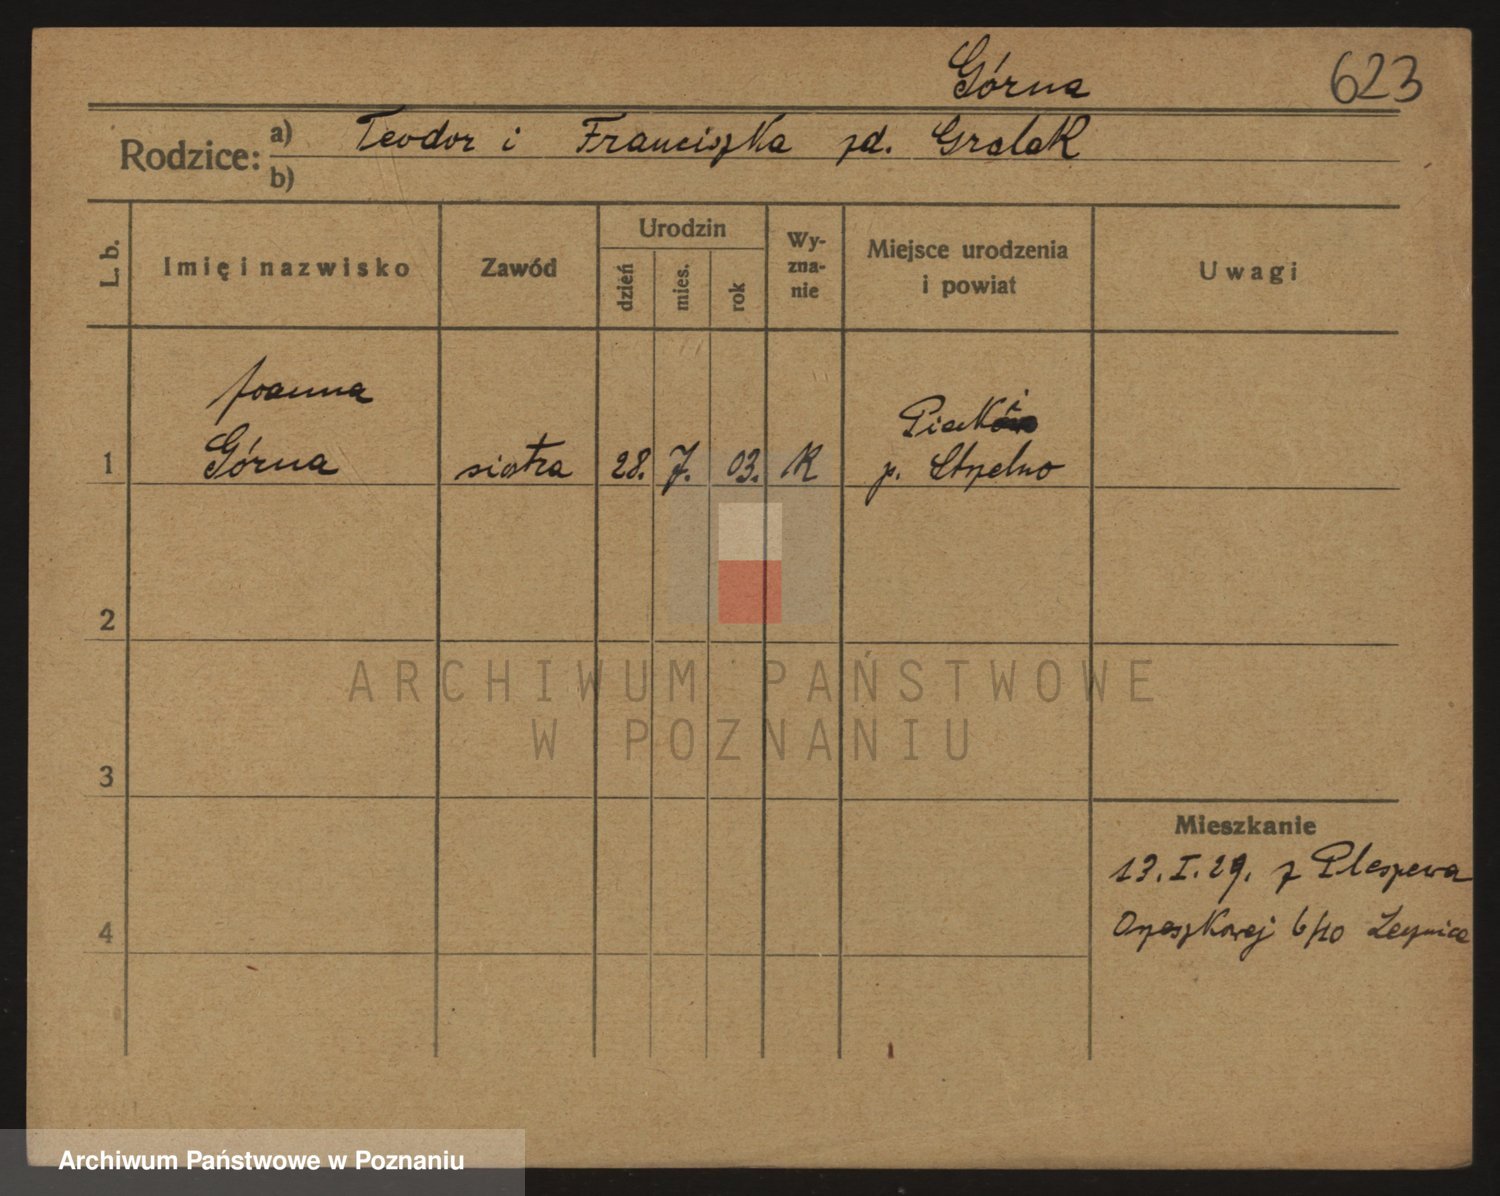 Górna
623
Rodzice: a) Teodor i Franciszka zd. Gralak
b)
L. b.
Imię i nazwisko
Zawód
Urodzin
dzień
mies.
rok
Wy-
zna-
nie
Miejsce urodzenia
i powiat
Uwagi
Joanna
Górna
1
siostra
28.
7.
03.
K
p. Strzelno
2
3
4
Mieszkanie
13. I. 29. z Pleszewa
6/10
ARCHIWUM PAŃSTWOWE
W POZNANIU
Archiwum Państwowe w Poznaniu